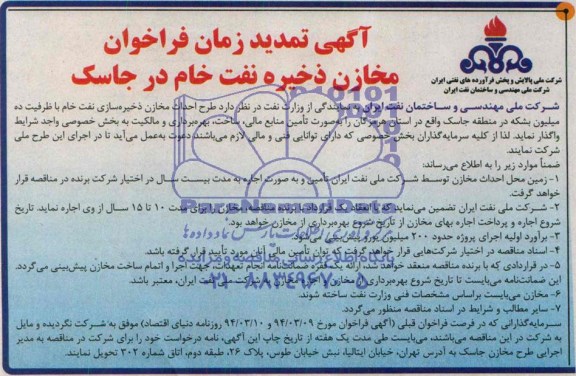 آگهی تمدید زمان فراخوان
مخازن ذخیره نفت خام در جاسک
شرکت ملی پالایش و پخش فرآورده های نفتی ایران
شرکت ملی مهندسی و ساختمان نفت ایران
شرکت ملی مهندسی و ساختمان نفت ایران به نمایندگی از وزارت نفت در نظر دارد طرح احداث مخازن ذخیره‌سازی نفت خام با ظرفیت ده
میلیون بشکه در منطقه جاسک واقع در استان هرمزگان را به‌صورت تأمین منابع مالی، ساخت، بهره‌برداری و مالکیت به بخش خصوصی واجد شرایط
واگذار نماید. لذا از کلیه سرمایه‌گذاران بخش خصوصی که دارای توانایی فنی و مالی لازم می‌باشند دعوت به‌عمل می‌آید تا در اجرای این طرح ملی
شرکت نمایند.
ضمناً موارد زیر را به اطلاع می‌رساند:
۱- زمین محل احداث مخازن توسط شرکت ملی نفت ایران تأمین و به صورت اجاره به مدت بیست سال در اختیار شرکت برنده در مناقصه قرار
خواهد گرفت.
۲- شرکت ملی نفت ایران تضمین می‌نماید که با انعقاد قرارداد با برنده مناقصه، مخازن را برای مدت ۱۰ تا ۱۵ سال از وی اجاره نماید. تاریخ
شروع اجاره و پرداخت اجاره بهای مخازن از تاریخ شروع بهره‌برداری از مخازن خواهد بود.
۳- برآورد اولیه اجرای پروژه حدود ۲۰۰ میلیون یورو پیش‌بینی می‌شود.
۴- اسناد مناقصه در اختیار شرکت‌هایی قرار خواهد گرفت که توان تأمین مالی آنان مورد تأیید قرار گرفته باشد.
۵- در قراردادی که با برنده مناقصه منعقد خواهد شد، ارائه یک فقره ضمانتنامه انجام تعهدات، جهت اجرا و اتمام ساخت مخازن پیش‌بینی می‌گردد.
این ضمانتنامه می‌بایست تا تاریخ شروع بهره‌برداری از مخازن و اجاره مخازن به شرکت ملی نفت ایران، معتبر باشد.
۶- مخازن می‌بایست براساس مشخصات فنی وزارت نفت ساخته شوند.
۷- سایر مطالب و شرایط در اسناد مناقصه منظور می‌گردد.
سرمایه‌گذارانی که در فرصت فراخوان قبلی (آگهی فراخوان مورخ ۹۴/۰۳/۰۹ و ۹۴/۰۳/۱۰ روزنامه دنیای اقتصاد) موفق به شرکت نگردیده و مایل
به شرکت در این مناقصه می‌باشند، می‌بایست طی مدت یک هفته از تاریخ چاپ این آگهی، نامه درخواست خود را برای شرکت در مناقصه به مدیر
اجرایی طرح مخازن جاسک به آدرس تهران، خیابان ایتالیا، نبش خیابان طوس، پلاک ۲۶، طبقه دوم، اتاق شماره ۳۰۲ تحویل نمایند.
ParsNamadData
پایگاه اطلاع رسانی مناقصه و مزایده
۰۲۱-۸۸۳۴۹۶۷۰-۵